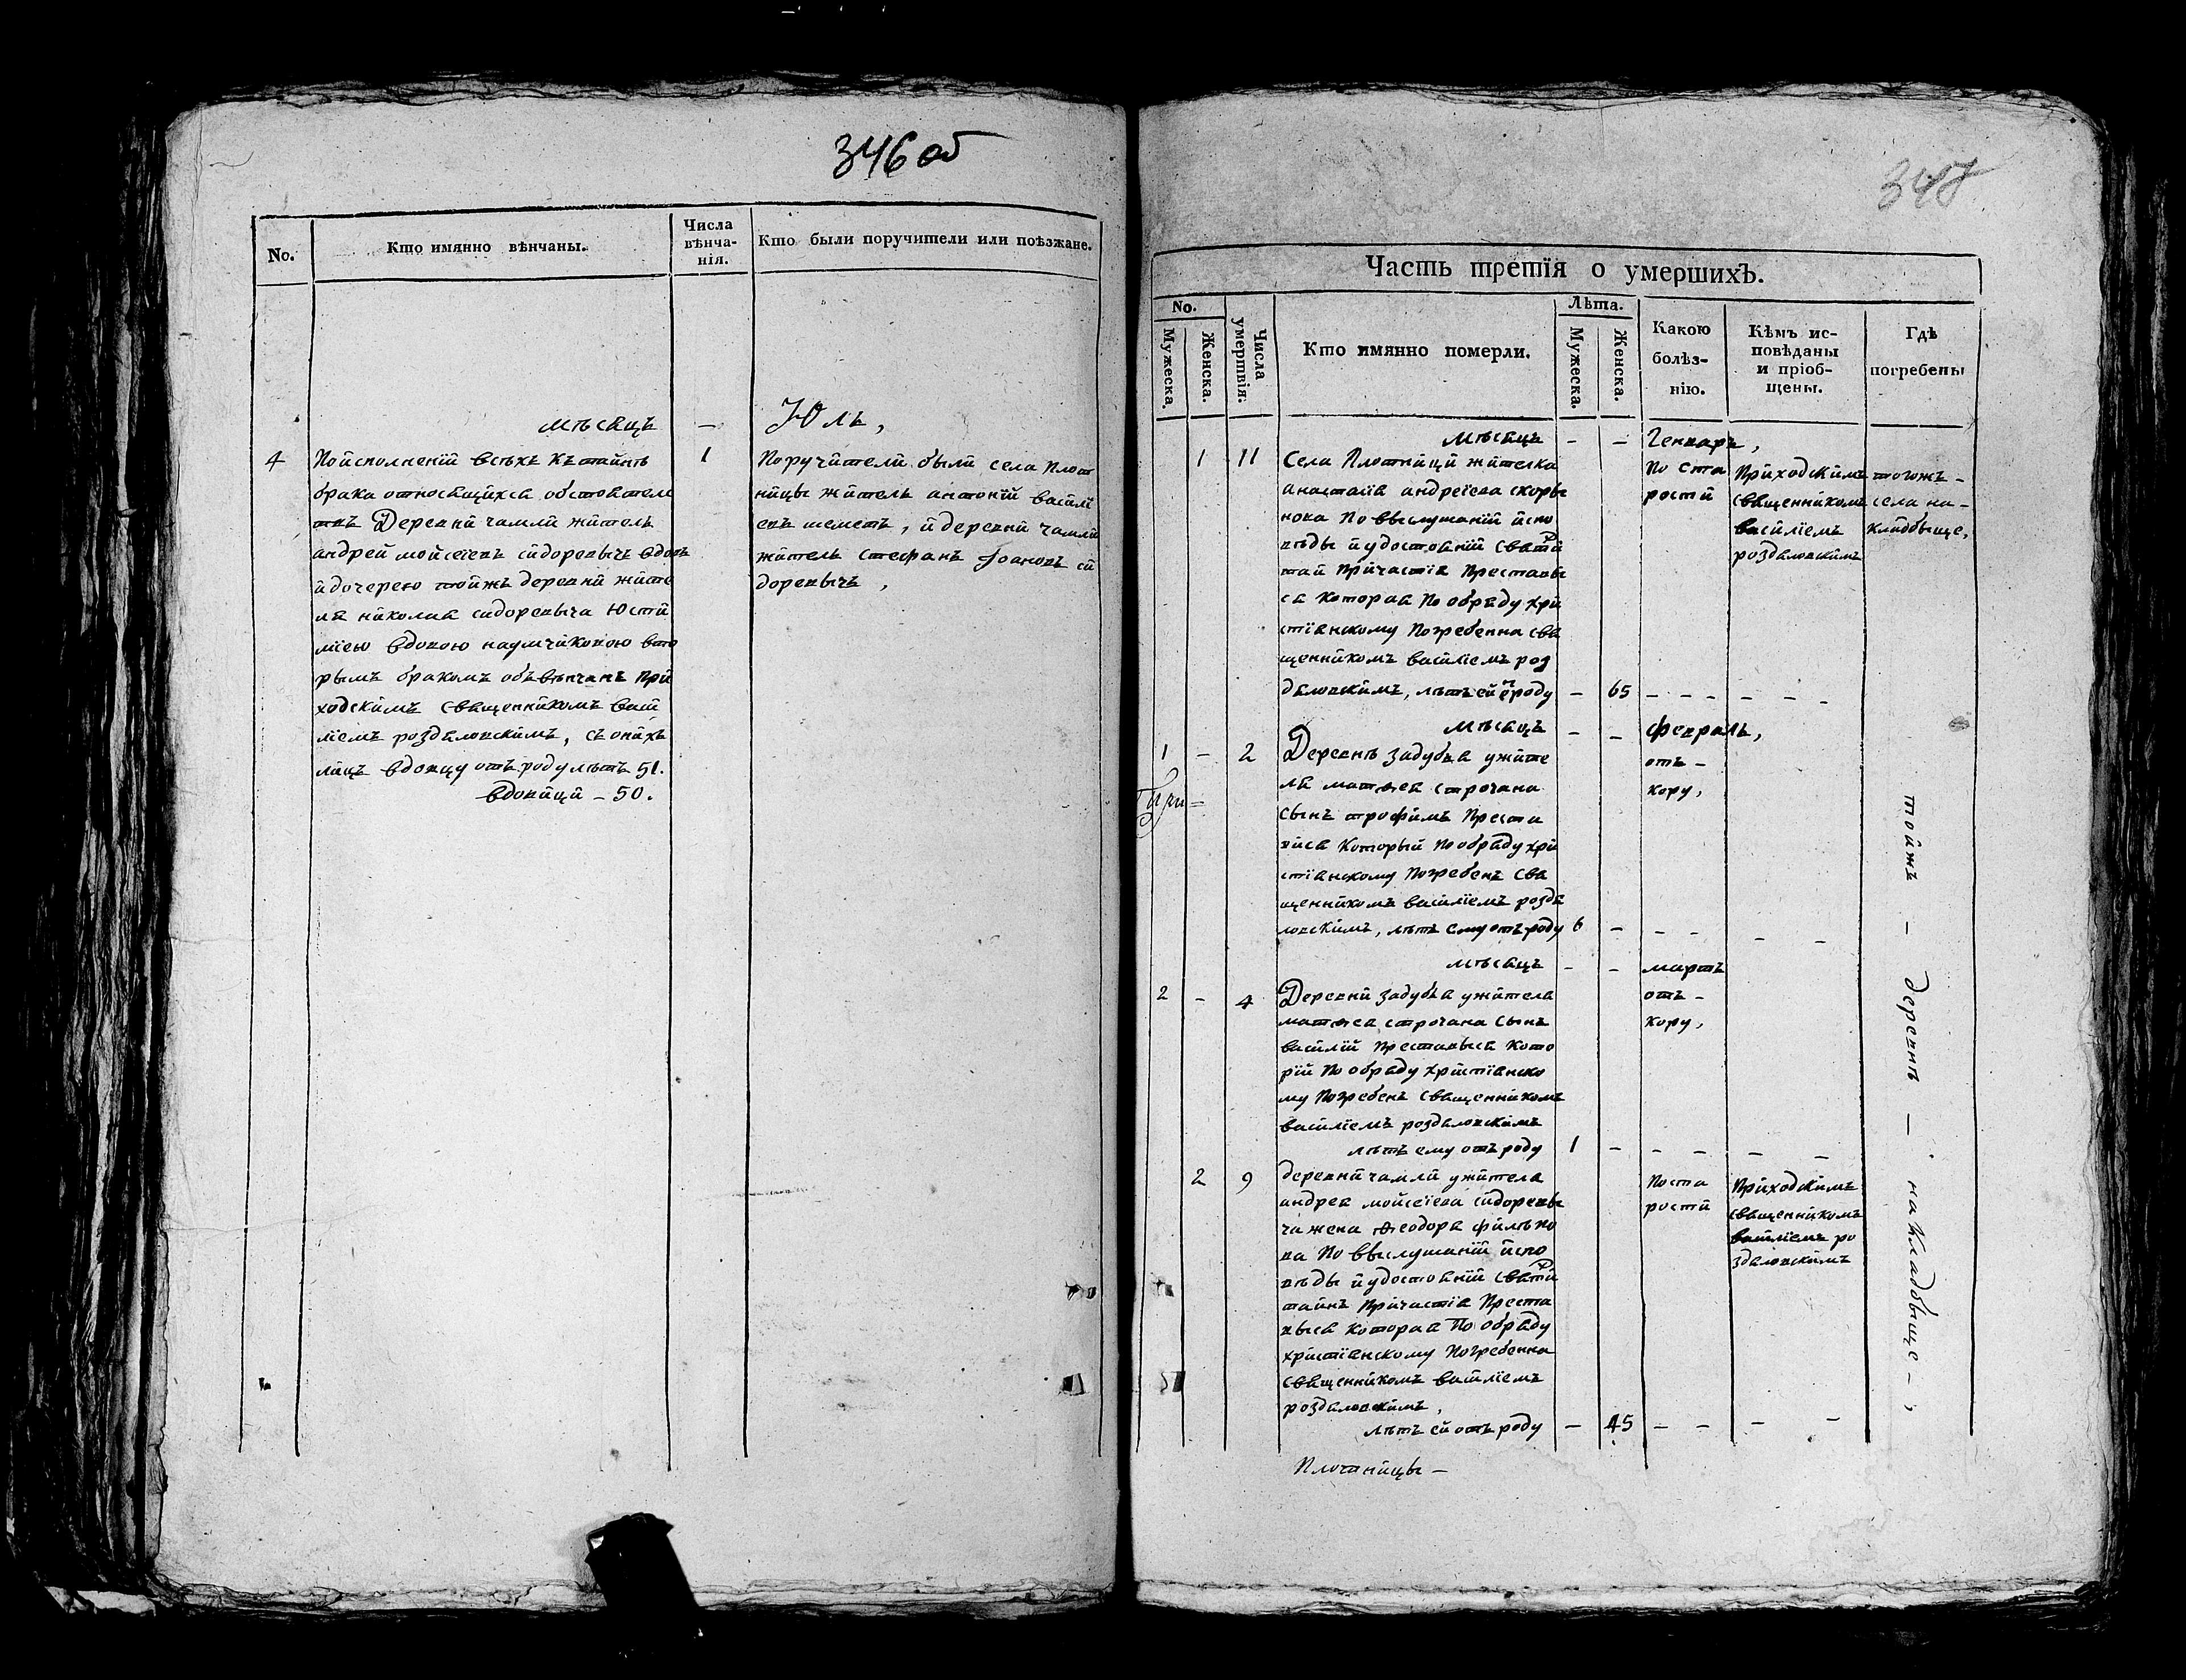 346 об
No.
Кто имянно вѣнчаны.
Числа
вѣнча-
нія.
Кто были поручители или поѣзжане.
мѣсяцъ — Юль,
4
По исполненіи всѣхъ къ тайнѣ
брака относящихся обстоятелс
твъ Деревни чамли житель
андрей мойсеіевъ сидоревычъ вдовъ
и дочерею тойжъ деревни жите
ля николая сидоревыча Юсти
міею вдовою наумчиковою вто
рымъ бракомъ обвѣнчанъ при
ходскимъ священникомъ васи
ліемъ роздяловскимъ, съ онихъ
лицъ вдовцу отъ роду лѣтъ 51.
вдовици — 50.
1
Поручители были села плот
ницы житель антоній васили
евъ шеметъ, и деревни чамли
житель стефанъ Іоановъ си
доревычъ,
348
Часть третія о умершихъ.
No.
Мужеска.
Женска.
Числа
умертвія.
Кто имянно померли.
Лѣта.
Мужеска.
Женска.
Какою
болѣз-
нію.
Кѣмъ ис-
повѣданы
и пріоб-
щены.
Гдѣ
погребены
мѣсяцъ — — Генваръ,
1 11
Села Плотници жителка
анастасія андреіева скоры
нова по выслушаніи испо
вѣды и удостояніи святи
таи причастія преставы
ся которая по обряду хри
стіанскому погребенна свя
щенникомъ василіемъ роз
дяловскимъ, лѣтъ ей отроду — 65 — — — — — —
По ста
рости
Приходскимъ
священникомъ
василіемъ
роздяловскимъ
тогожъ —
села на —
кладбыще,
мѣсяцъ — — февраль,
1 — 2
Деревнѣ задубья ужите
ля матѳея строчана
сынъ трофимъ преста
вися который по обряду хри
стіанскому погребенъ свя
щенникомъ василіемъ роздя
ловскимъ, лѣтъ ему отъ роду 6 — — — — —
отъ —
кору,
мѣсяцъ — — мартъ
2 — 4
Деревни задубья ужителя
матѳея строчана сынъ
василій преставыся кото
рій по обряду христіанско
му погребенъ священникомъ
василіемъ роздяловскимъ
лѣтъ ему отъ роду 1 — — — — —
отъ —
кору,
2 9
деревни чамли ужителя
андрея мойсеіева сидоревы
ча жена ѳеодора филипо
ва по выслушаніи испо
вѣды и удостояніи святи
таинъ причастія преста
выся которая по обряду
христіанскому погребенна
священникомъ василіемъ
роздяловскимъ,
лѣтъ ей отъ роду — 45 — — — —
Поста
рости
Приходскимъ
священникомъ
василіемъ ро
здяловскимъ
тойжъ — деревнѣ — на кладбыще —,
Плотницы —